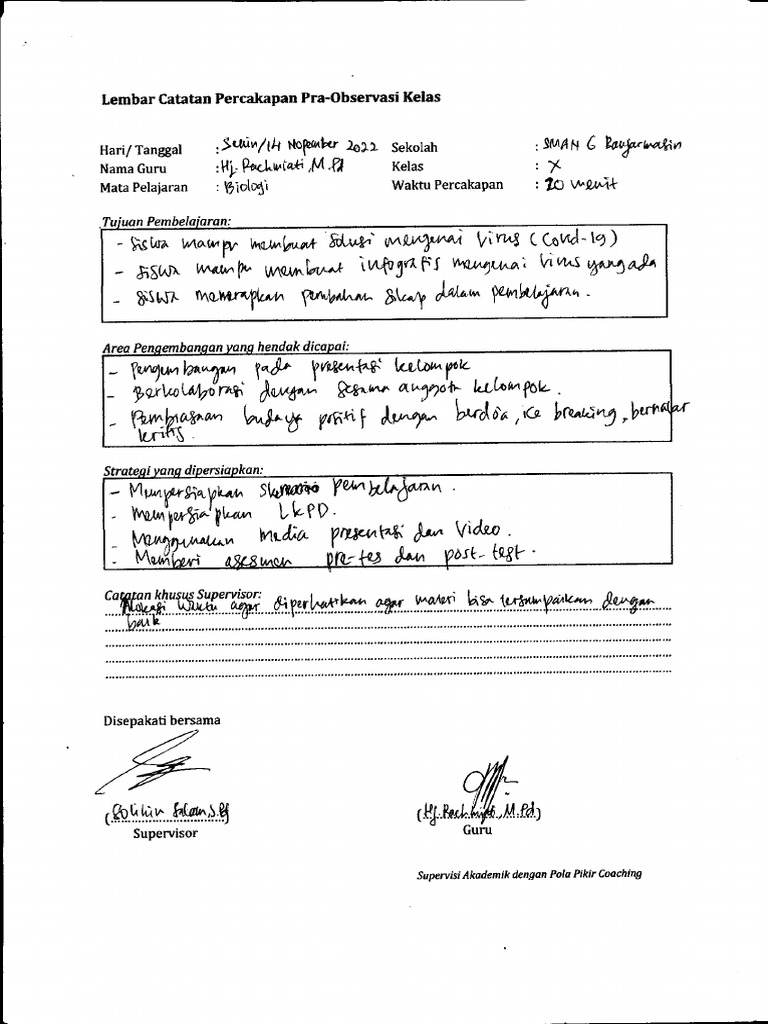 Lembar Catatan Percakapan Pra-Observasi Kelas
Hari/ Tanggal : Senin/14 Nopember 2022 Sekolah : SMAN 6 Banjarmasin
Nama Guru : Hj. Rachmiati, M.Pd Kelas : X
Mata Pelajaran : Biologi Waktu Percakapan : 20 menit
Tujuan Pembelajaran:
- Siswa mampu membuat solusi mengenai virus (Covid-19)
- Siswa mampu membuat infografis mengenai virus yang ada
- Siswa menerapkan perubahan sikap dalam pembelajaran.
Area Pengembangan yang hendak dicapai:
- Pengembangan pada presentasi kelompok
- Berkolaborasi dengan sesama anggota kelompok.
- Pembiasaan budaya positif dengan berdoa, ice breaking, bernalar
kritis.
Strategi yang dipersiapkan:
- Mempersiapkan skenario pembelajaran.
- Mempersiapkan LKPD.
- Menggunakan media presentasi dan video.
- Memberi asesmen pre-tes dan post-test.
Catatan khusus Supervisor:
Alokasi waktu agar diperhatikan agar materi bisa tersampaikan dengan
baik
Disepakati bersama
(Solihin S.Pd) (Hj. Rachmiati, M.Pd)
Supervisor Guru
Supervisi Akademik dengan Pola Pikir Coaching